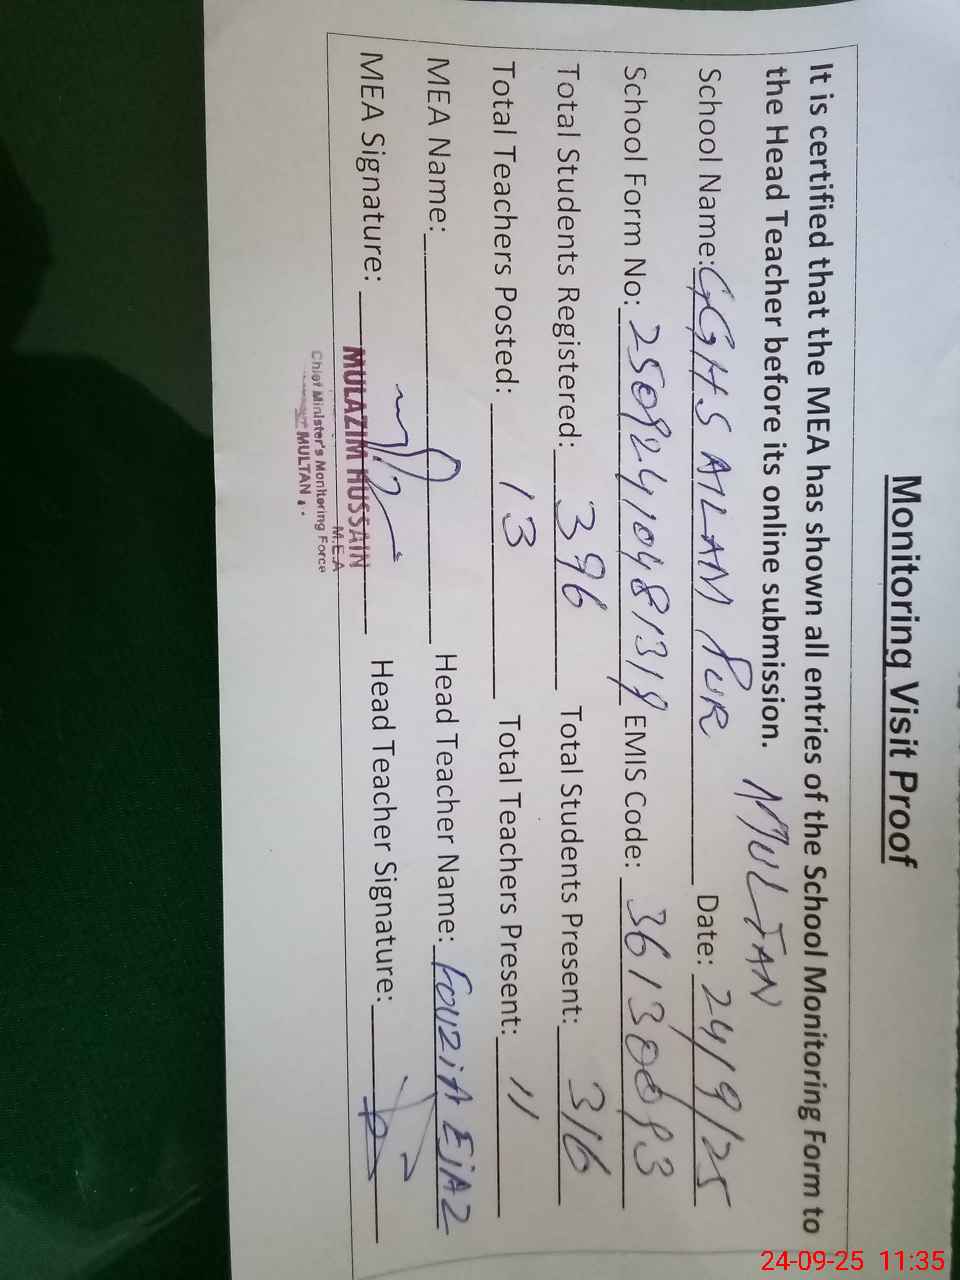 Monitoring Visit Proof
It is certified that the MEA has shown all entries of the School Monitoring Form to
the Head Teacher before its online submission. MULTAN
School Name: GGHS AILAM PUR Date: 24/9/25
School Form No: EMIS Code:
Total Students Registered: 396 Total Students Present: 316
Total Teachers Posted: 13 Total Teachers Present: 11
MEA Name: Head Teacher Name: Fouzia Ejaz
MEA Signature: Head Teacher Signature:
MULAZIM HUSSAIN
M.E.A
Chief Minister's Monitoring Force
MULTAN
24-09-25 11:35